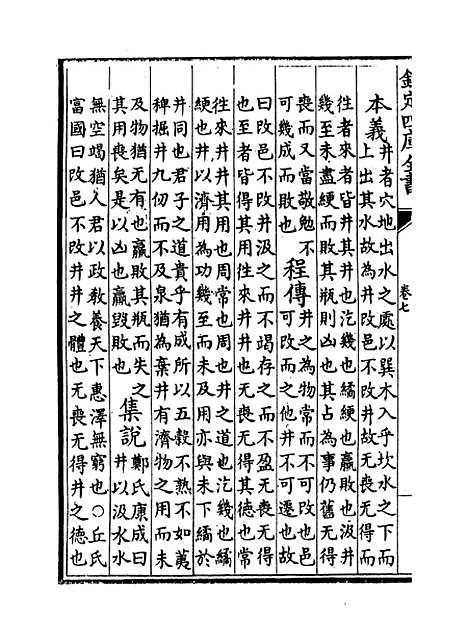 欽定四庫全書
卷七
本義
井者穴地出水之處以巽木入乎坎水之下而
上出其水故為井改邑不改井故无喪无得而
往者來者皆井其井也汔幾也繘綆也羸敗也汲井
幾至未盡綆而敗其瓶則凶也其占為事仍舊无得
喪而又當敬勉不
可幾成而敗也
程傳
井之為物常而不可改也邑
可改而之他井不可遷也故
曰改邑不改井汲之而不竭存之而不盈无喪无得
也至者皆得其用往來井井也无喪无得其德也常
往來井井其用也周常也周也井之道也汔幾也繘
綆也井以濟用為功幾至而未及用亦與未下繘於
井同也君子之道貴乎有成所以五穀不熟不如荑
稗掘井九仞而不及泉猶為棄井有濟物之用而未
及物猶无有也羸敗其瓶而失之
其用喪矣是以凶也羸毀敗也
集說
鄭氏康成曰
井以汲水水
無空竭猶人君以政教養天下惠澤無窮也○丘氏
富國曰改邑不改井井之體也无喪无得井之德也